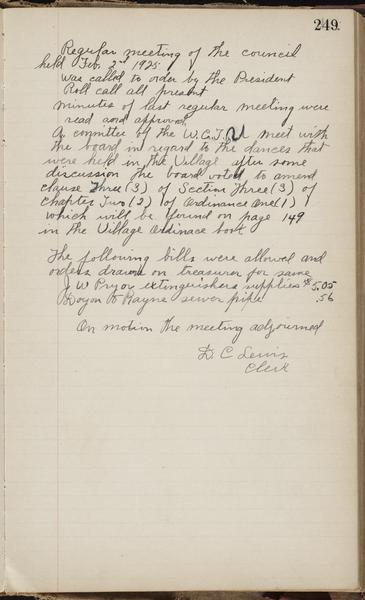 249.
Regular meeting of the council
held Feb. 2nd 1925.
Was called to order by the President
Roll call all present
minutes of last regular meeting were
read and approved,
A committee of the W.C.T.U meet with
the board in regard to the dances that
were held in the Village after some
discussion the board voted to amend
clause Three (3) of Section Three (3) of
Chapter Two (2) of Ordinance One (1)
which will be found on page 149
in the Village Ordinace book
The following bills were allowed and
orders drawn on treasurer for same
J W Pryor extinguishers supplies $5.05
Doyon & Rayne sewer pipe .56
On motion the meeting adjourned
D. C Lewis
Clerk